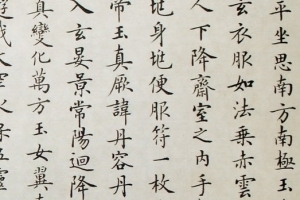 平坐思南方南極玉
玄衣服如法乘赤雲
人下降齋室之內手
地身地便服符一枚
帝玉真厥諱丹容丹
入玄晏景常陽迴降
真變化萬方玉女翼